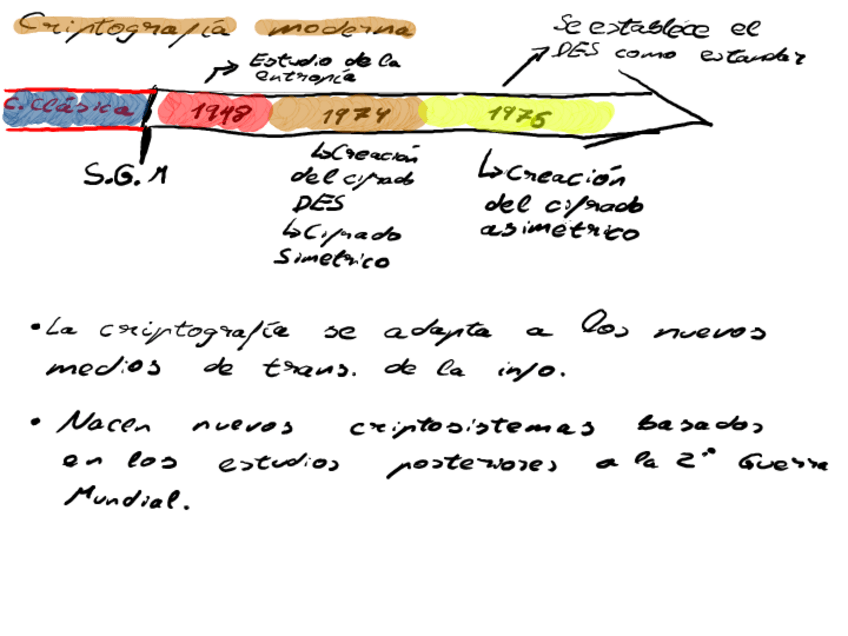 Criptografía moderna
Se establece el
DES como estandar
Estudio de la
entropía
C. Clásica
1948
1974
1976
S.G.M
↳Creación
del cifrado
DES
↳Cifrado
Simetrico
↳Creación
del cifrado
asimétrico
•La criptografía se adapta a los nuevos
medios de trans. de la info.
• Nacen nuevos criptosistemas basados
en los estudios posteriores a la 2ª Guerra
Mundial.